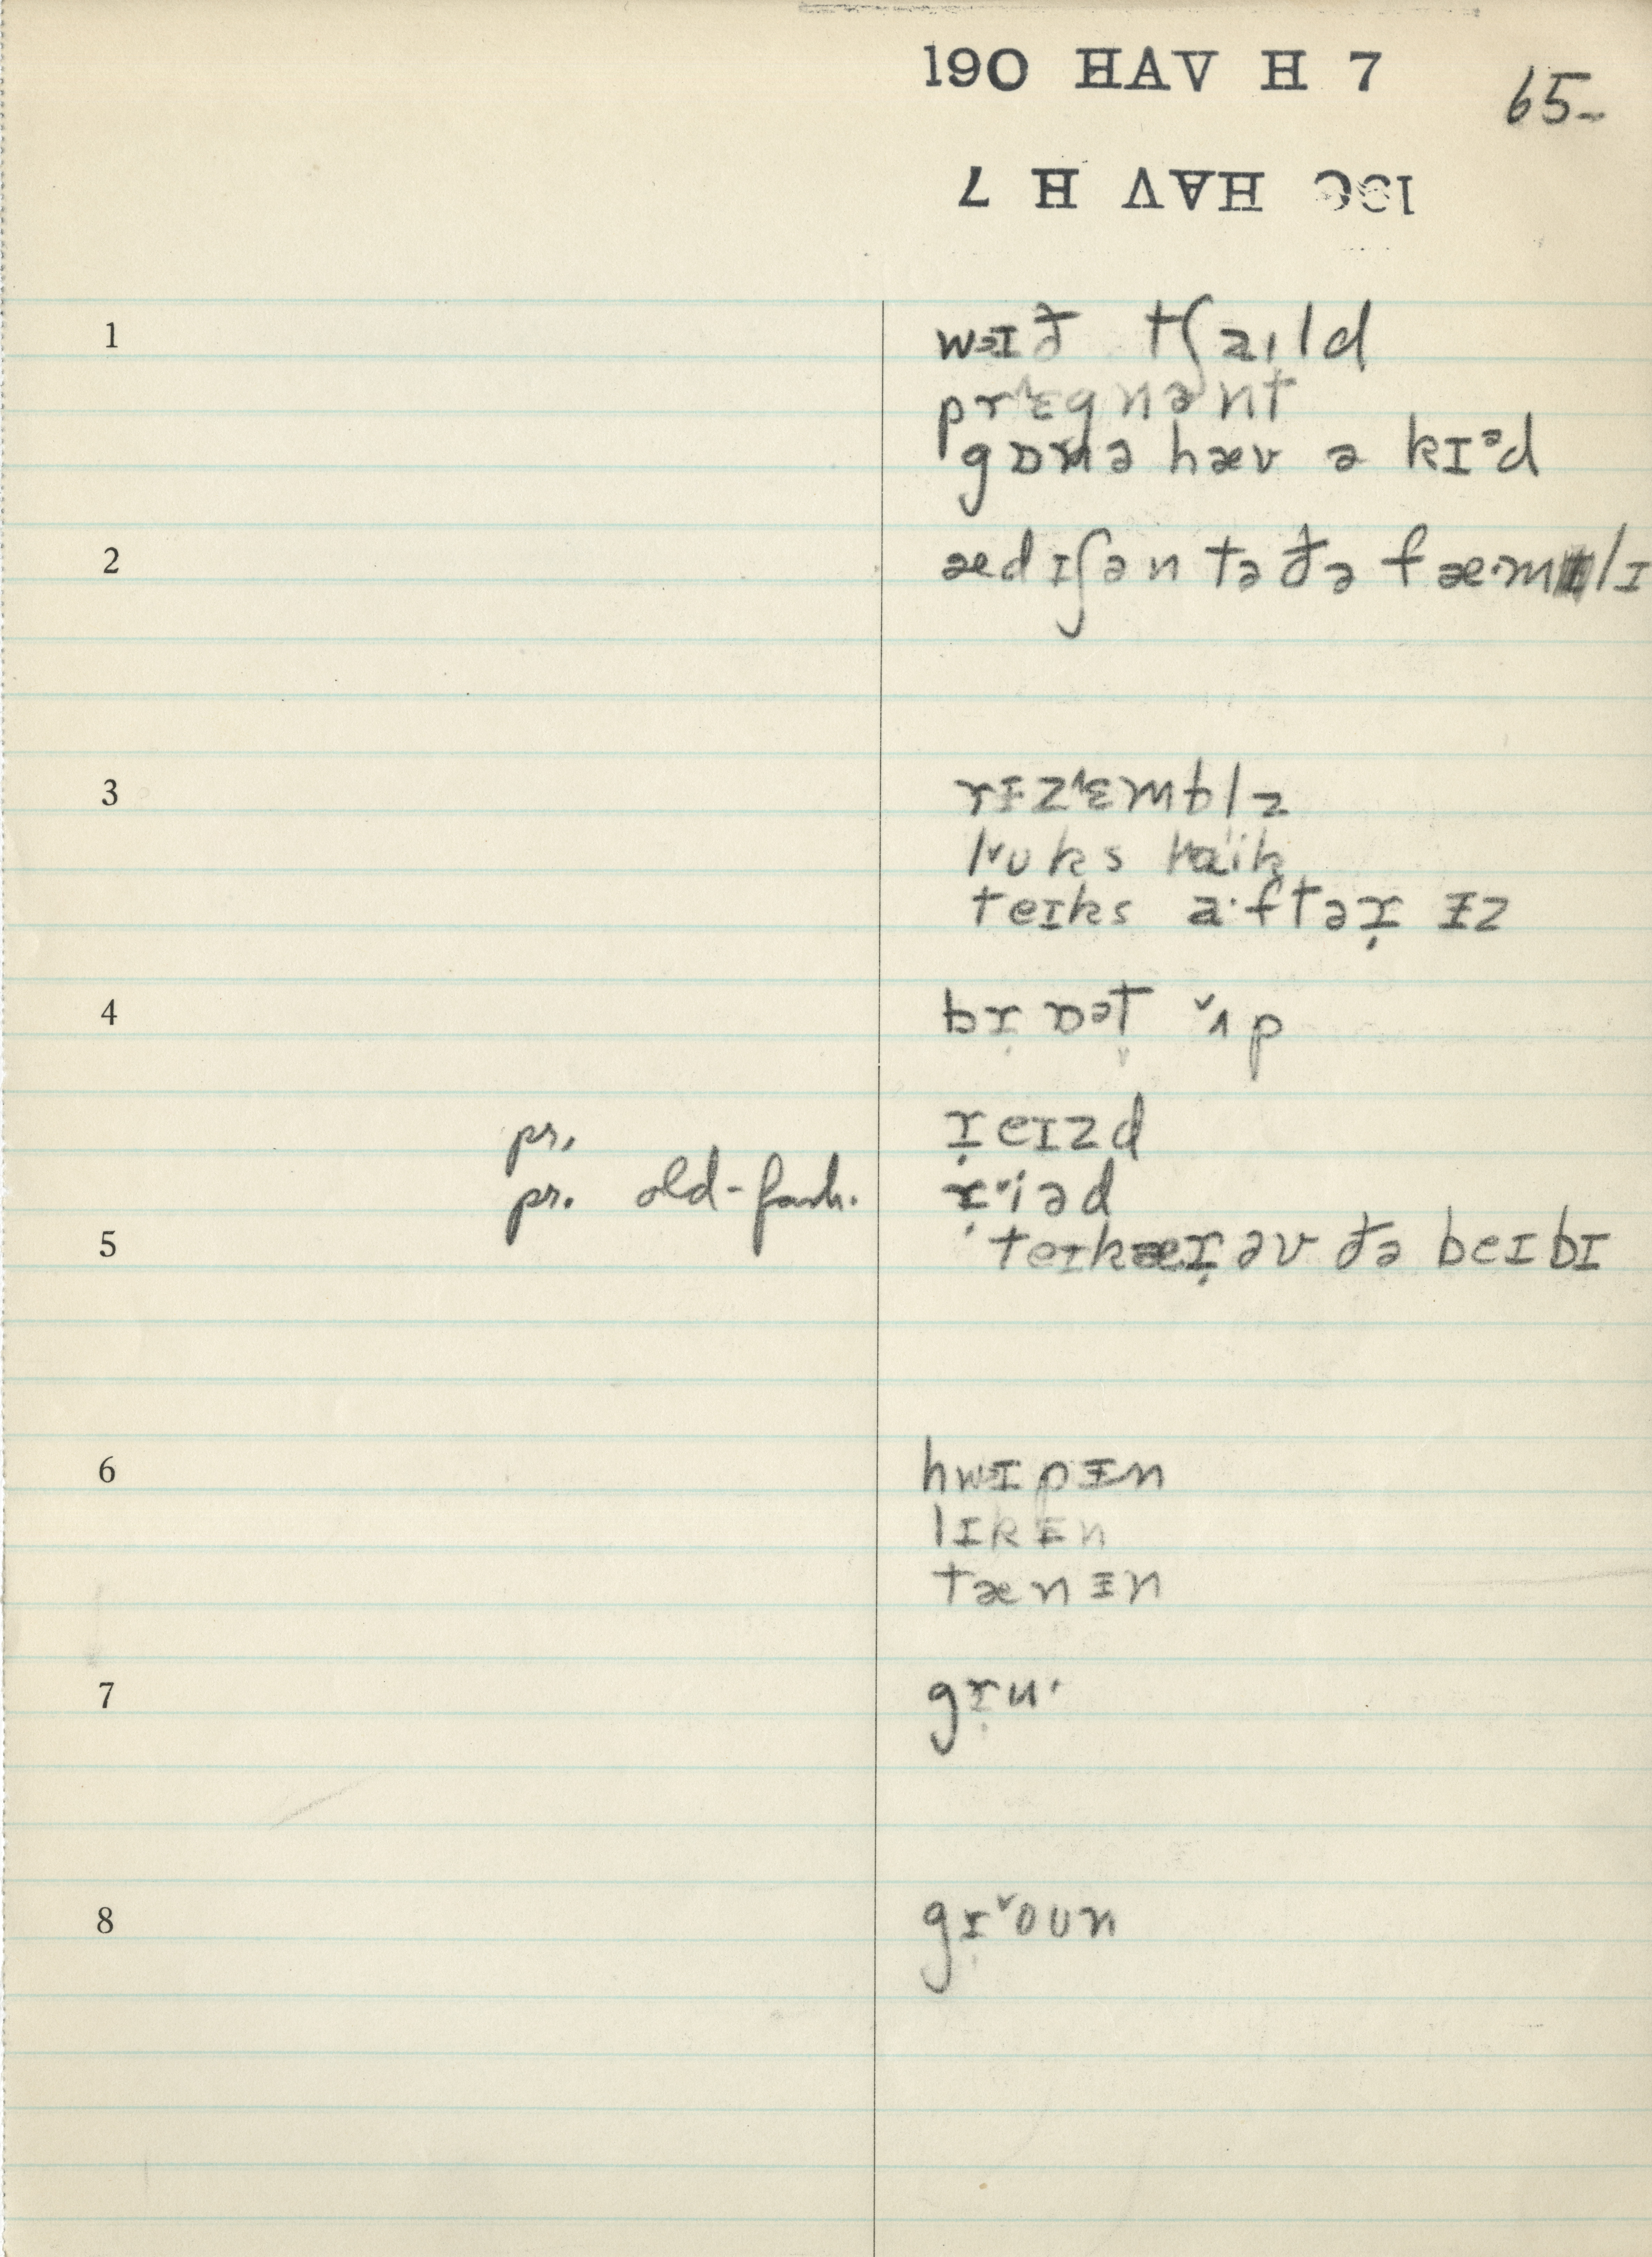 190 HAV H 7
65-
190 HAV H 7
1 wɪð tʃaɪld
prɛgnənt
gɒnə hæv ə kɪᵊd
2 ædɪʃən tə ðə fæ·mlɪ
3 rɨz˄ɛmblz
l˅ʊks laik
teɪks a·ftəɹ ɨz
4 bɹɒᵊt ˅ʌp
pr. ɹeɪzd
pr. old-fash. ɹ˅iəd
5 teɪkæɹ əv ðə beɪbɪ
6 hwɪpɨn
lɪkɨn
tænɨn
7 gɹu·
8 gɹ˅oʊn